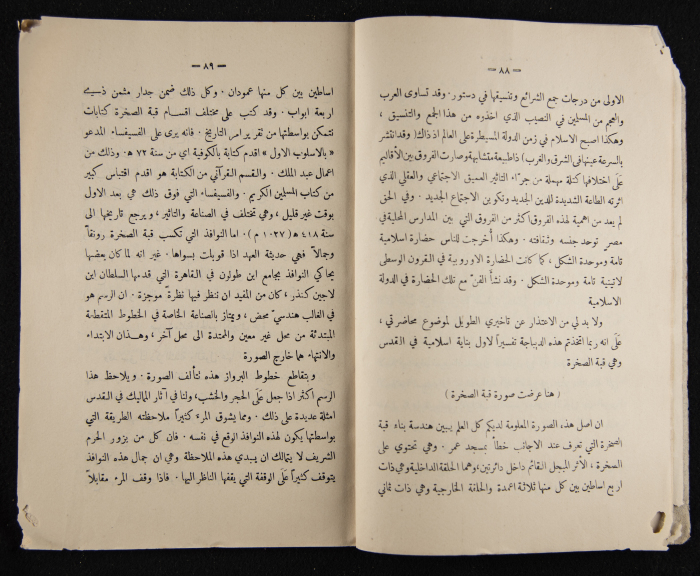 — ٨٨ —
الاولى من درجات جمع الشرائع وتنسيقها في دستور . وقد تساوى العرب
والعجم من المسلمين في النصيب الذي اخذوه من هذا الجمع والتنسيق ،
وهكذا اصبح الاسلام في زمن الدولة المسيطرة على العالم اذ ذاك (وقد انتشر
بالسرعة عينها في الشرق والغرب) ذا طبيعة متشابهة وصارت الفروق بين الأقاليم
عَلَى اختلافها كتلة مهملة من جرّاء التأثير العميق الاجتماعي والعقلي الذي
اثرته الطاعة الشديدة للدين الجديد وتكوين الاجتماع الجديد . وفي الحق
لم يعد من اهمية لهذه الفروق اكثر من الفروق التي بين المدارس المحلية في
مصرٍ توحد جنسه وثقافته . وهكذا أُخرجت للناس حضارة اسلامية
تامة وموحدة الشكل ، كما كانت الحضارة الاوروبية في القرون الوسطى
لاتينية تامة وموحدة الشكل . وقد نشأ الفنّ مع تلك الحضارة في الدولة
الاسلامية
ولا بد لي من الاعتذار عن تأخيري الطويل لموضوع محاضرتي ،
عَلَى انه ربما اتخذتم هذه الديباجة تفسيراً لاول بناية اسلامية في القدس
وهي قبة الصخرة
( هنا عرضت صورة قبة الصخرة )
ان اصل هذه الصورة المعلومة لديكم كل العلم يبين هندسة بناء قبة
الصخرة التي تعرف عند الاجانب خطأً بمسجد عمر . وهي تحتوي على
الصخرة ، الأثر المبجل القائم داخل دائرتين ؛ وهما الحلقة الداخلية وهي ذات
اربع اساطين بين كل منها ثلاثة اعمدة والحلقة الخارجية وهي ذات ثماني
— ٨٩ —
اساطين بين كل منها عمودان . وكل ذلك ضمن جدار مثمن ذي
اربعة ابواب . وقد كتب على مختلف اقسام قبة الصخرة كتابات
نتمكن بواسطتها من تقرير امر التاريخ . فانه يرى على الفسيفساء المدعو
« بالاسلوب الاول » اقدم كتابة بالكوفية اي من سنة ٧٢ ه . وذلك من
اعمال عبد الملك . والقسم القرآني من الكتابة هو اقدم اقتباس كبير
من كتاب المسلمين الكريم . والفسيفساء التي فوق ذلك هي بعد الاول
بوقت غير قليل ، وهي تختلف في الصناعة والتأثير ، ويرجع تاريخها الى
سنة ٤١٨ ه ( ١٠٢٧ م ) . اما النوافذ التي تكسب قبة الصخرة رونقاً
وجمالاً فهي حديثة العهد اذا قوبلت بسواها . غير انه لما كان بعضها
يحاكي النوافذ بجامع ابن طولون في القاهرة التي قدمها السلطان ابن
لاجين كندر ، كان من المفيد ان ننظر فيها نظرة موجزة . ان الرسم هو
في الغالب هندسيّ محض ، ويمتاز بالصناعة الخاصة في الخطوط المتقطعة
المبتدئة من محل غير معين والممتدة الى محل آخر ، وهذان الابتداء
والانتهاء هما خارج الصورة
و بتقاطع خطوط البرواز هذه تتألف الصورة . ويلاحظ هذا
الرسم اكثر اذا جعل عَلَى الحجر والخشب ، ولنا في آثار المماليك في القدس
امثلة عديدة على ذلك . ومما يشوق المرء كثيراً ملاحظته الطريقة التي
بواسطتها يكون لهذه النوافذ الوقع في نفسه . فان كل من يزور الحرم
الشريف لا يتمالك ان يبدي هذه الملاحظة وهي ان جمال هذه النوافذ
يتوقف كثيراً عَلَى الوقفة التي يقفها الناظر اليها . فاذا وقف المرء مقابلاً